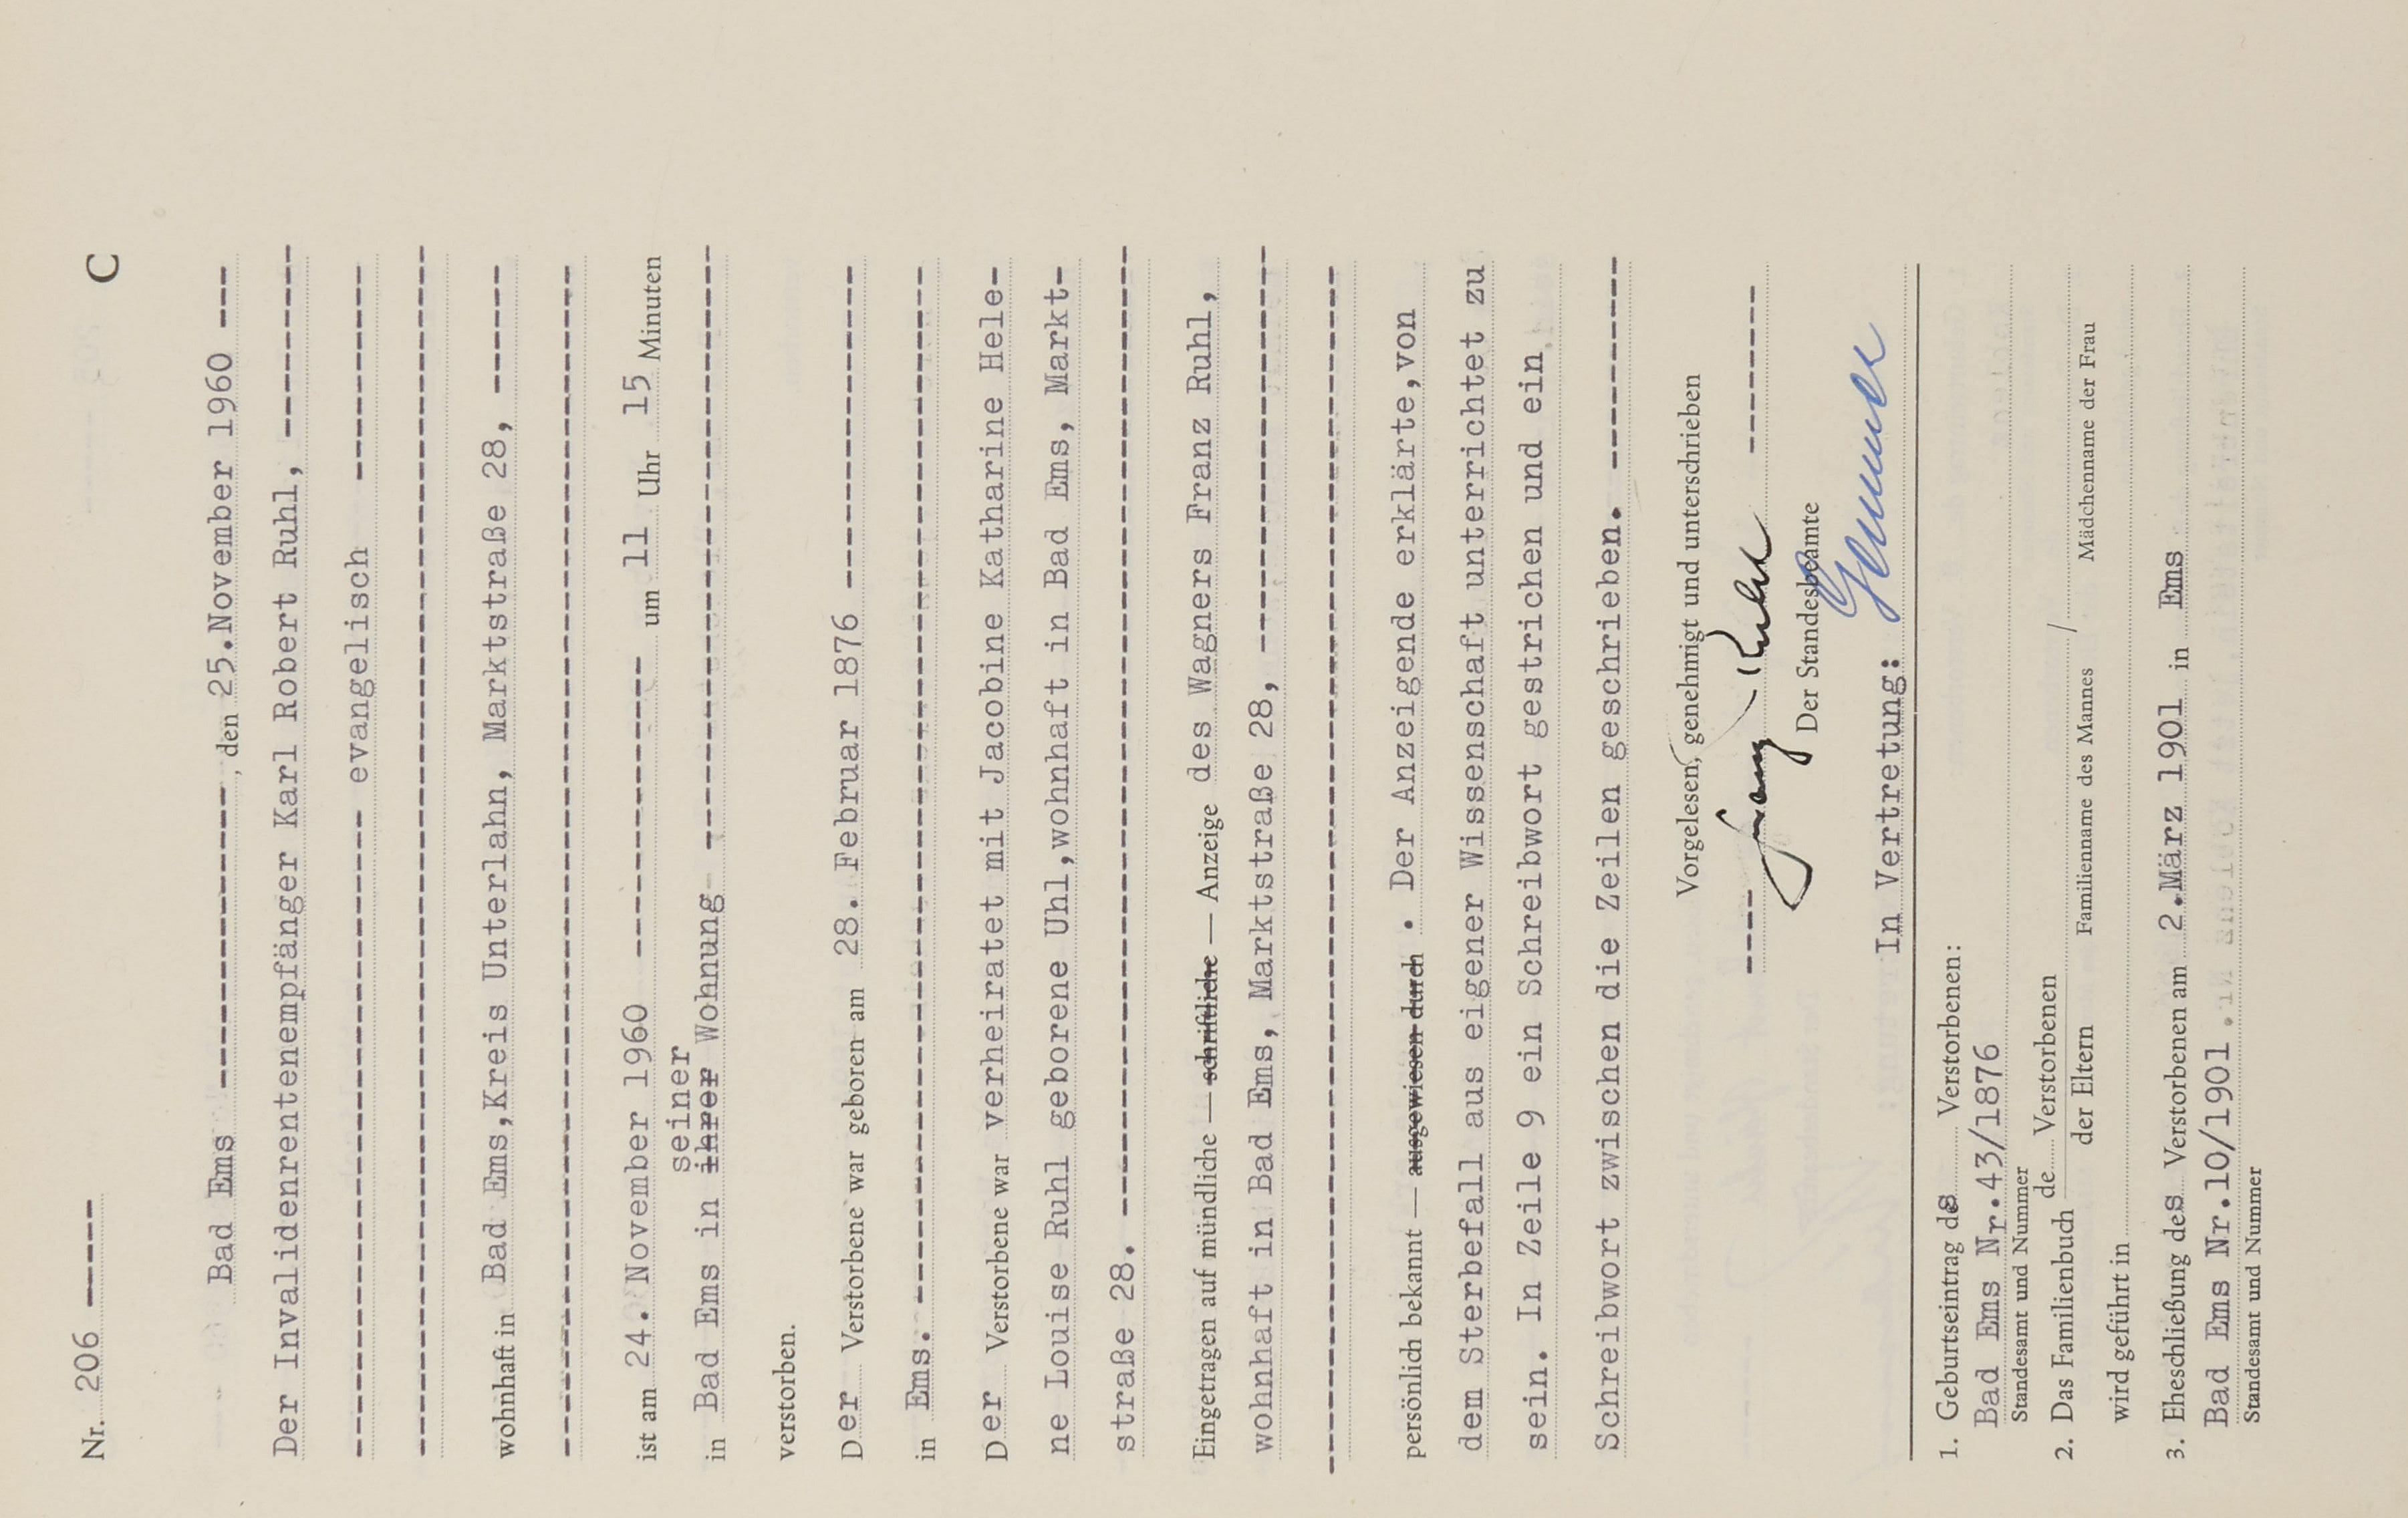 Nr. 206 ----- C
Bad Ems ----------------, den 25.November 1960 ---
Der Invalidenrentenempfänger Karl Robert Ruhl, ----------
----------------- evangelisch -----------
wohnhaft in Bad Ems,Kreis Unterlahn, Marktstraße 28, ------
ist am 24. November 1960 --------------- um 11 Uhr 15 Minuten
seiner
in Bad Ems in ihrer Wohnung ------------------------------
verstorben.
Der Verstorbene war geboren am 28. Februar 1876 ----------------
in Ems. ----------------------------------------------------
Der Verstorbene war verheiratet mit Jacobine Katharine Hele-
ne Louise Ruhl geborene Uhl,wohnhaft in Bad Ems, Markt-
straße 28. --------------------------------------------------
Eingetragen auf mündliche — schriftliche — Anzeige des Wagners Franz Ruhl,
wohnhaft in Bad Ems, Marktstraße 28, --------------------
persönlich bekannt — ausgewiesen durch . Der Anzeigende erklärte,von
dem Sterbefall aus eigener Wissenschaft unterrichtet zu
sein. In Zeile 9 ein Schreibwort gestrichen und ein
Schreibwort zwischen die Zeilen geschrieben. -----------
Vorgelesen, genehmigt und unterschrieben
---- Franz Ruhl ---------
Der Standesbeamte
In Vertretung:
1. Geburtseintrag des Verstorbenen:
Bad Ems Nr.43/1876
Standesamt und Nummer
2. Das Familienbuch de Verstorbenen der Eltern /
Familienname des Mannes Mädchenname der Frau
wird geführt in
3. Eheschließung des Verstorbenen am 2.März 1901 in Ems
Bad Ems Nr.10/1901.
Standesamt und Nummer